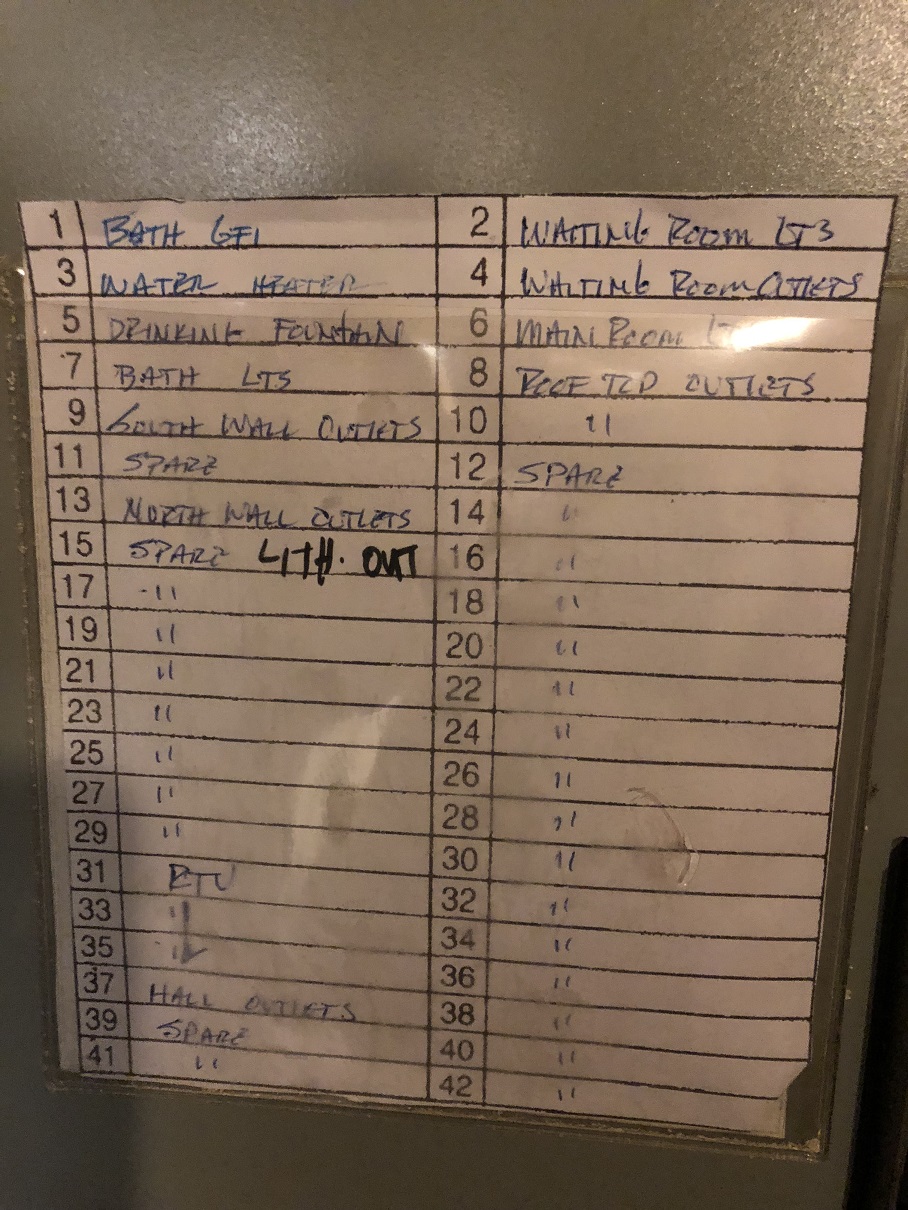 1 BATH GFI 2 WAITING ROOM LTS
3 WATER HEATER 4 WAITING ROOM OUTLETS
5 DRINKING FOUNTAIN 6 MAIN ROOM
7 BATH LTS 8 ROOF TOP OUTLETS
9 SOUTH WALL OUTLETS 10 "
11 SPARE 12 SPARE
13 NORTH WALL OUTLETS 14 "
15 SPARE LITH. OUT 16 "
17 " 18 "
19 " 20 "
21 " 22 "
23 " 24 "
25 " 26 "
27 " 28 "
29 " 30 "
31 RTU 32 "
33 " 34 "
35 " 36 "
37 HALL OUTLETS 38 "
39 SPARE 40 "
41 " 42 "